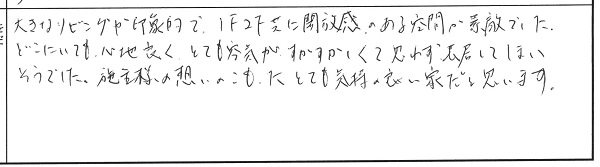 大きなリビングが印象的で、1F2F共に開放感のある空間が素敵でした。
どこにいても心地良く、とても空気がすがすがしくて思わず長居してしまい
そうでした。施主様の想いのこもった とても気持の良い家だと思います。